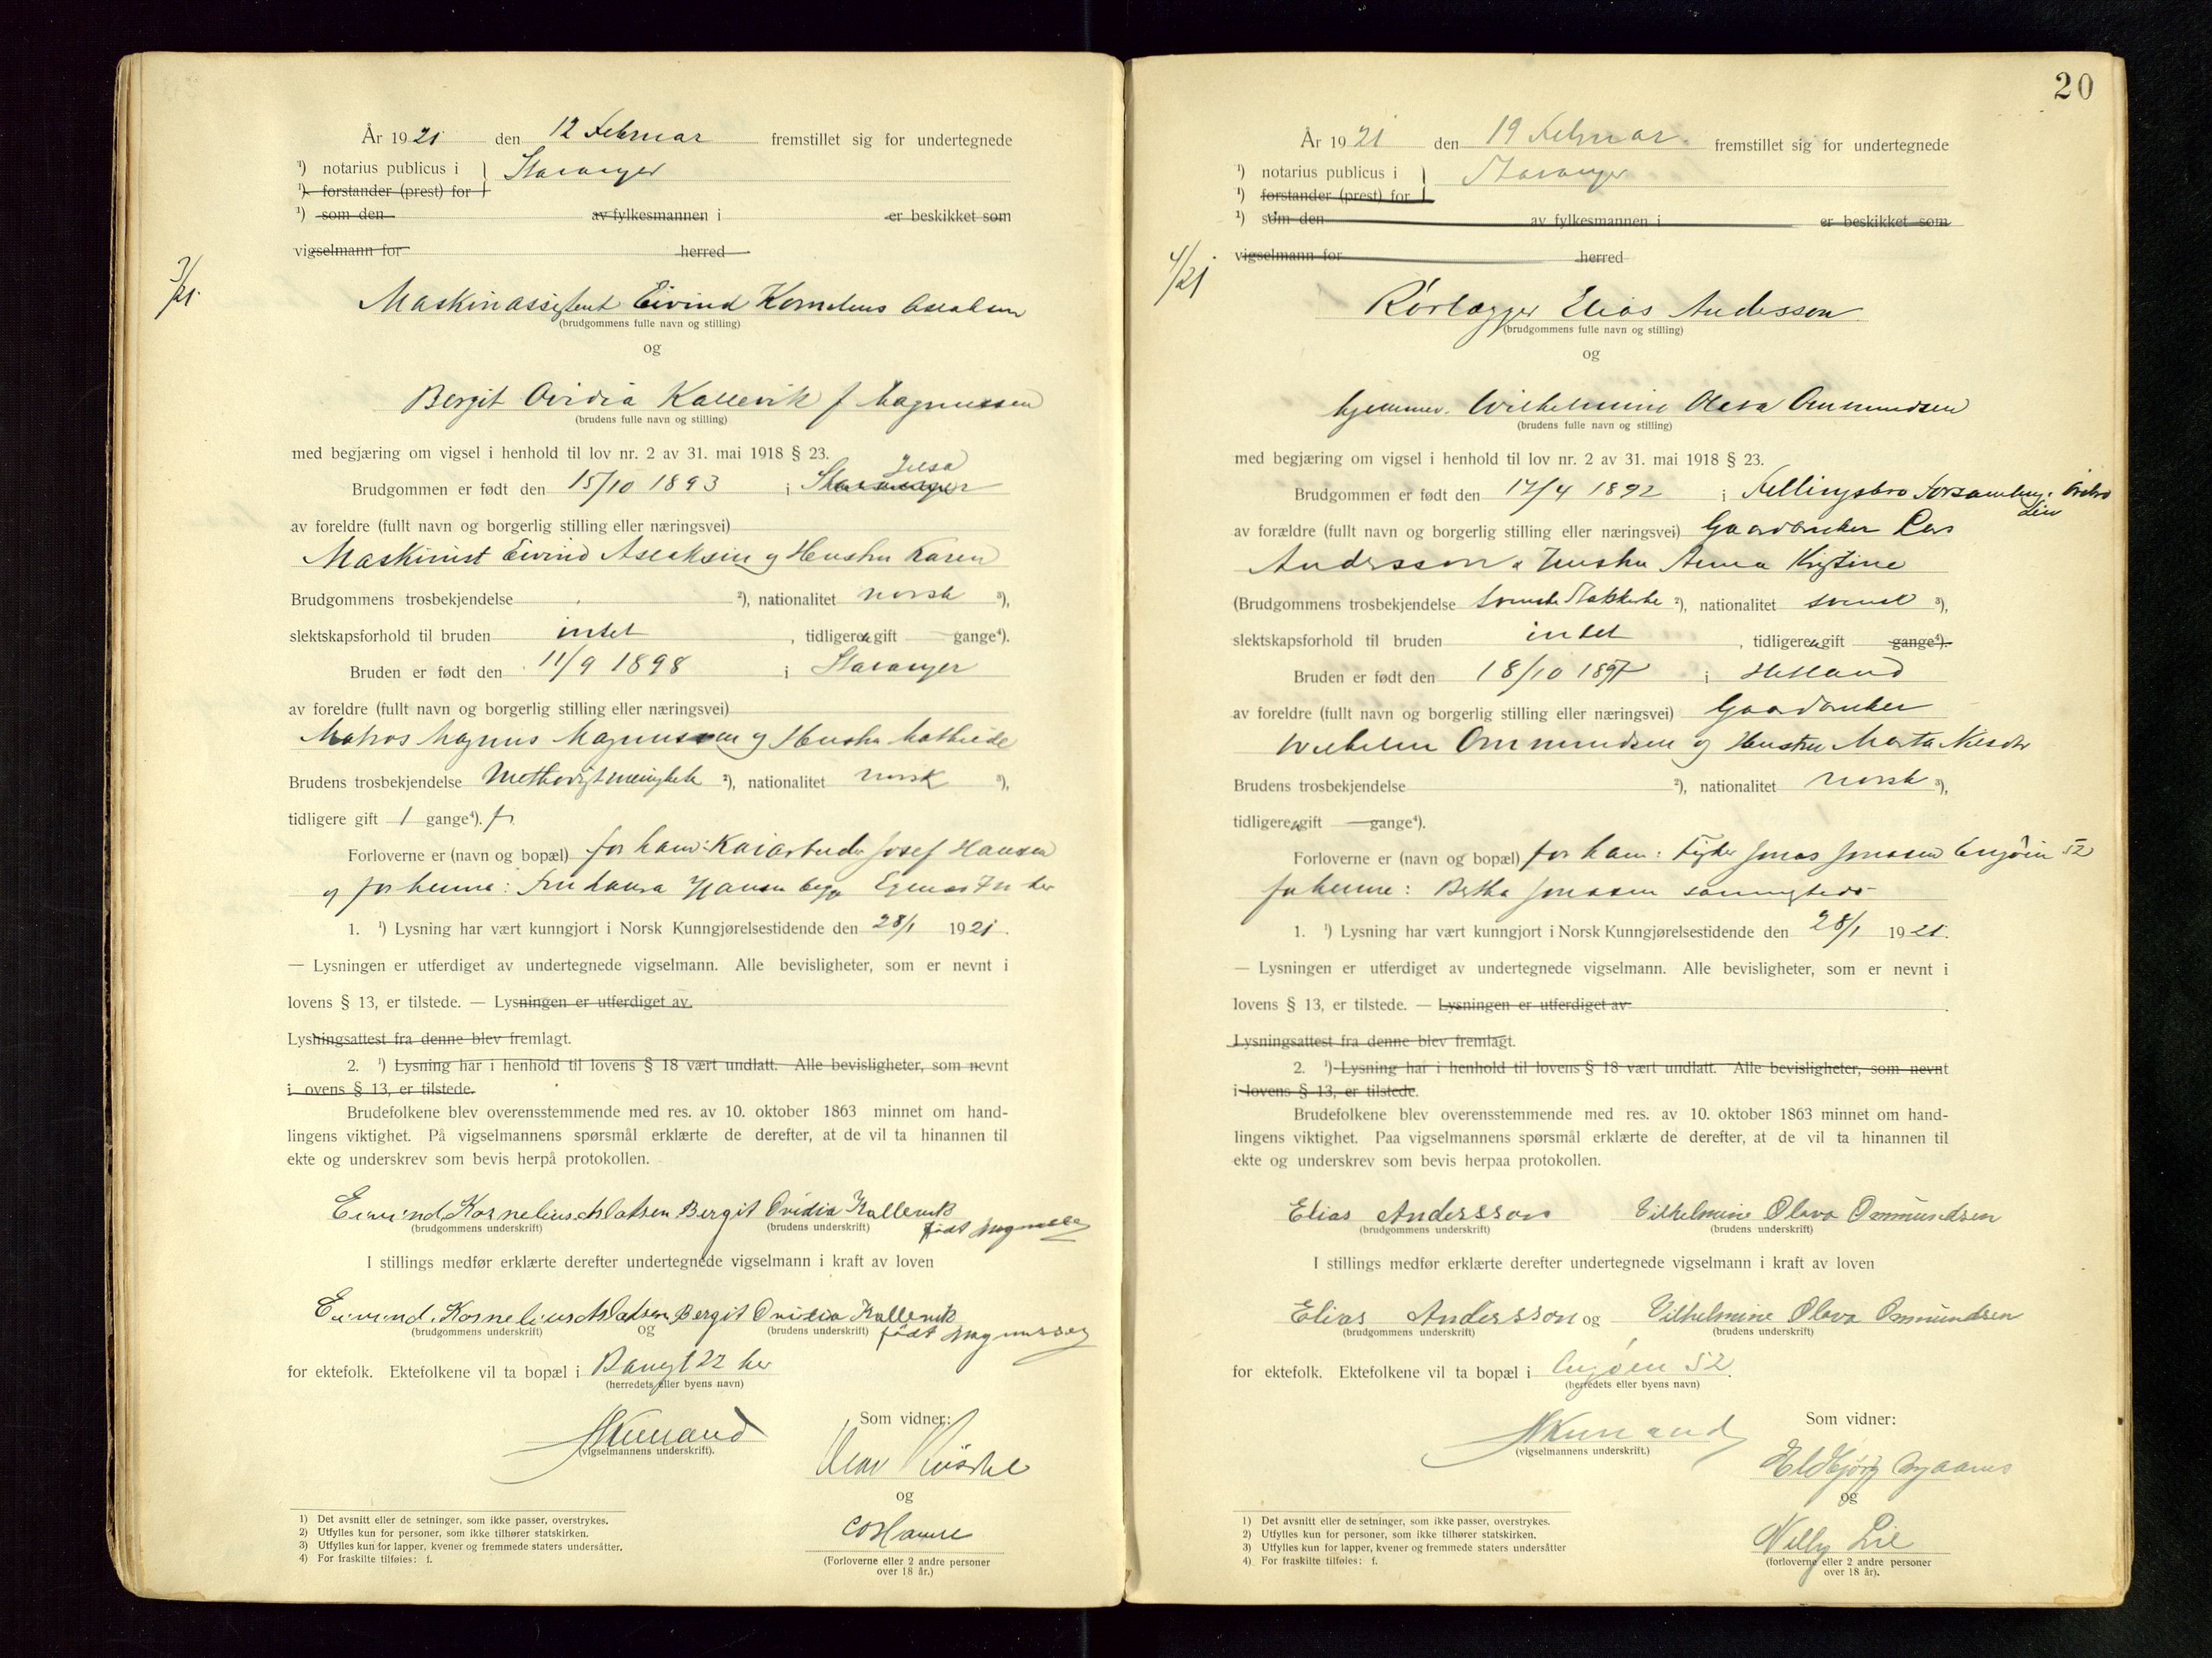 År 1921 den 12 Februar fremstillet sig for undertegnede
¹) notarius publicus i } Stavanger
¹) forstander (prest) for
¹) som den av fylkesmannen i er beskikket som
vigselmann for herred
3/21.
Maskinassistent Eivind Kornelius Aslaksen
(brudgommens fulle navn og stilling)
og
Bergit Ovidia Kallevik f Magnussen
(brudens fulle navn og stilling)
med begjæring om vigsel i henhold til lov nr. 2 av 31. mai 1918 § 23.
Jelsa
Brudgommen er født den 15/10 1893 i Stavanger
av foreldre (fullt navn og borgerlig stilling eller næringsvei)
Maskinist Eivind Aslaksen og Hustru Karen
Brudgommens trosbekjendelse ²), nationalitet norsk ³),
slektskapsforhold til bruden intet , tidligere gift gange⁴).
Bruden er født den 11/9 1898 i Stavanger
av foreldre (fullt navn og borgerlig stilling eller næringsvei)
Matros Magnus Magnussen og Hustru Mathilde
Brudens trosbekjendelse Methodistmenighet ²), nationalitet norsk ³),
tidligere gift 1 gange⁴). f.
Forloverne er (navn og bopæl) for ham: Kaiarbeider Josef Hansen
og for henne: Fru Laura Hansen begge Egenes her
1. ¹) Lysning har vært kunngjort i Norsk Kunngjørelsestidende den 28/1 1921.
— Lysningen er utferdiget av undertegnede vigselmann. Alle bevisligheter, som er nevnt i
lovens § 13, er tilstede. — Lysningen er utferdiget av
Lysningsattest fra denne blev fremlagt.
2. ¹) Lysning har i henhold til lovens § 18 vært undlatt. Alle bevisligheter, som nevnt
i ovens § 13, er tilstede.
Brudefolkene blev overensstemmende med res. av 10. oktober 1863 minnet om hand-
lingens viktighet. På vigselmannens spørsmål erklærte de derefter, at de vil ta hinannen til
ekte og underskrev som bevis herpå protokollen.
Eivind Kornelius Aslaksen Bergit Ovidia Kallevik
(brudgommens underskrift) (brudens underskrift) født Magnussen
I stillings medfør erklærte derefter undertegnede vigselmann i kraft av loven
Eivind Kornelius Aslaksen Bergit Ovidia Kallevik
(brudgommens underskrift) og (brudens underskrift) født Magnussen
for ektefolk. Ektefolkene vil ta bopæl i Bangt 22 her
(herredets eller byens navn)
(vigselmannens underskrift).
Som vidner:
og
(Forloverne eller 2 andre personer
over 18 år.)
1) Det avsnitt eller de setninger, som ikke passer, overstrykes.
2) Utfylles kun for personer, som ikke tilhører statskirken.
3) Utfylles kun for lapper, kvener og fremmede staters undersåtter.
4) For fraskilte tilføies: f.
20
År 1921 den 19 Februar. fremstillet sig for undertegnede
¹) notarius publicus i } Stavanger
¹) forstander (prest) for
¹) som den av fylkesmannen i er beskikket som
vigselmann for herred
4/21
Rørlægger Elias Andersson
(brudgommens fulle navn og stilling)
og
hjemmev. Wilhelmine Olava Ommundsen
(brudens fulle navn og stilling)
med begjæring om vigsel i henhold til lov nr. 2 av 31. mai 1918 § 23.
Brudgommen er født den 17/4 1892 i Fellingsbro Forsamling, Örebro
Len
av forældre (fullt navn og borgerlig stilling eller næringsvei) Gaardbruker Lars
Andersson & Hustru Anna Kristine
(Brudgommens trosbekjendelse svenske Statskirke ²), nationalitet svensk ³),
slektskapsforhold til bruden intet , tidligere gift gange⁴).
Bruden er født den 18/10 1897 i Hetland
av foreldre (fullt navn og borgerlig stilling eller næringsvei) Gaardbruker
Wilhelm Ommundsen og Hustru Marta Nilsdtr
Brudens trosbekjendelse ²), nationalitet norsk ³),
tidligere gift gange⁴).
Forloverne er (navn og bopæl) for ham: Fisker Jonas Jonassen Engøen 52
for henne: Bertha Jonassen sammesteds
1. ¹) Lysning har vært kunngjort i Norsk Kunngjørelsestidende den 28/1 1921.
— Lysningen er utferdiget av undertegnede vigselmann. Alle bevisligheter, som er nevnt i
lovens § 13, er tilstede. — Lysningen er utferdiget av
Lysningsattest fra denne blev fremlagt.
2. ¹) Lysning har i henhold til lovens § 18 vært undlatt. Alle bevisligheter, som nevnt
i lovens § 13, er tilstede.
Brudefolkene blev overensstemmende med res. av 10. oktober 1863 minnet om hand-
lingens viktighet. Paa vigselmannens spørsmål erklærte de derefter, at de vil ta hinannen til
ekte og underskrev som bevis herpaa protokollen.
Elias Andersson Vilhelmine Olava Ommundsen
(brudgommens underskrift) (brudens underskrift)
I stillings medfør erklærte derefter undertegnede vigselmann i kraft av loven
Elias Andersson og Vilhelmine Olava Ommundsen
(brudgommens underskrift) (brudens underskrift)
for ektefolk. Ektefolkene vil ta bopæl i Engøen 52.
(herredets eller byens navn)
(vigselmannens underskrift.)
Som vidner:
og
Willy Lie
(forloverne eller 2 andre personer
over 18 år).
1) Det avsnitt eller de setninger, som ikke passer, overstrykes.
2) Utfylles kun for personer, som ikke tilhører statskirken.
3) Utfylles kun for lapper, kvener og fremmede staters undersåtter
4) For fraskilte tilføies: f.